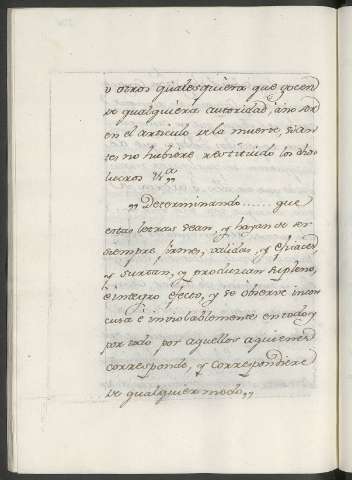 u otros qualesquiera que gocen
de qualquiera autoridad, áno ser
en el articulo de la muerte, y an-
tes no hubiere restituido los dhos
lucros &a,,
,,Determinando....... que
estas letras sean, y hayan de ser
siempre firmes, validas, y eficaces,
y surtan, y produzcan su pleno,
é integro efecto, y se observe incon-
cusa é inviolablemente en todo, y
por todo por aquellos aquienes
corresponde, y correspondiere
de qualquier modo,,